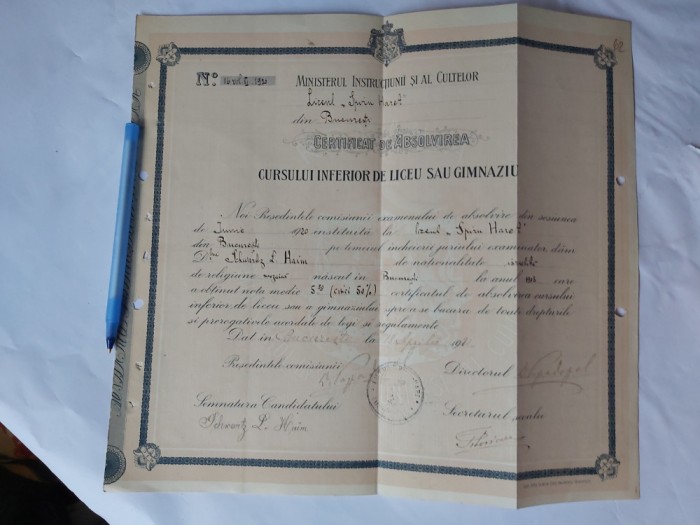 No 1920
MINISTERUL INSTRUCȚIUNII ȘI AL CULTELOR
62
Liceul „Spiru Haret"
din București
CERTIFICAT DE ABSOLVIREA
CURSULUI INFERIOR DE LICEU SAU GIMNAZIU
Noi Președintele comisiunii examenului de absolvire dea sesiunea
de Iunie 1920 instituită la Liceul „Spiru Haret"
din București pe temeiul încheierii juriului examinator, dăm
Schwartz L. Haim de naționalitate
de religiune născut în București la anul care
a obținut nota medie 5.50 (cinci 50%) certificatul de absolvirea cursului
inferior de liceu sau a gimnaziului spre a se bucura de toate drepturile
și prerogativele acordate de legi și regulamente
Dat în București la Aprilie
Președintele comisiunii Directorul
Semnatura Candidatului Secretarul școalei
Schwartz L. Haim